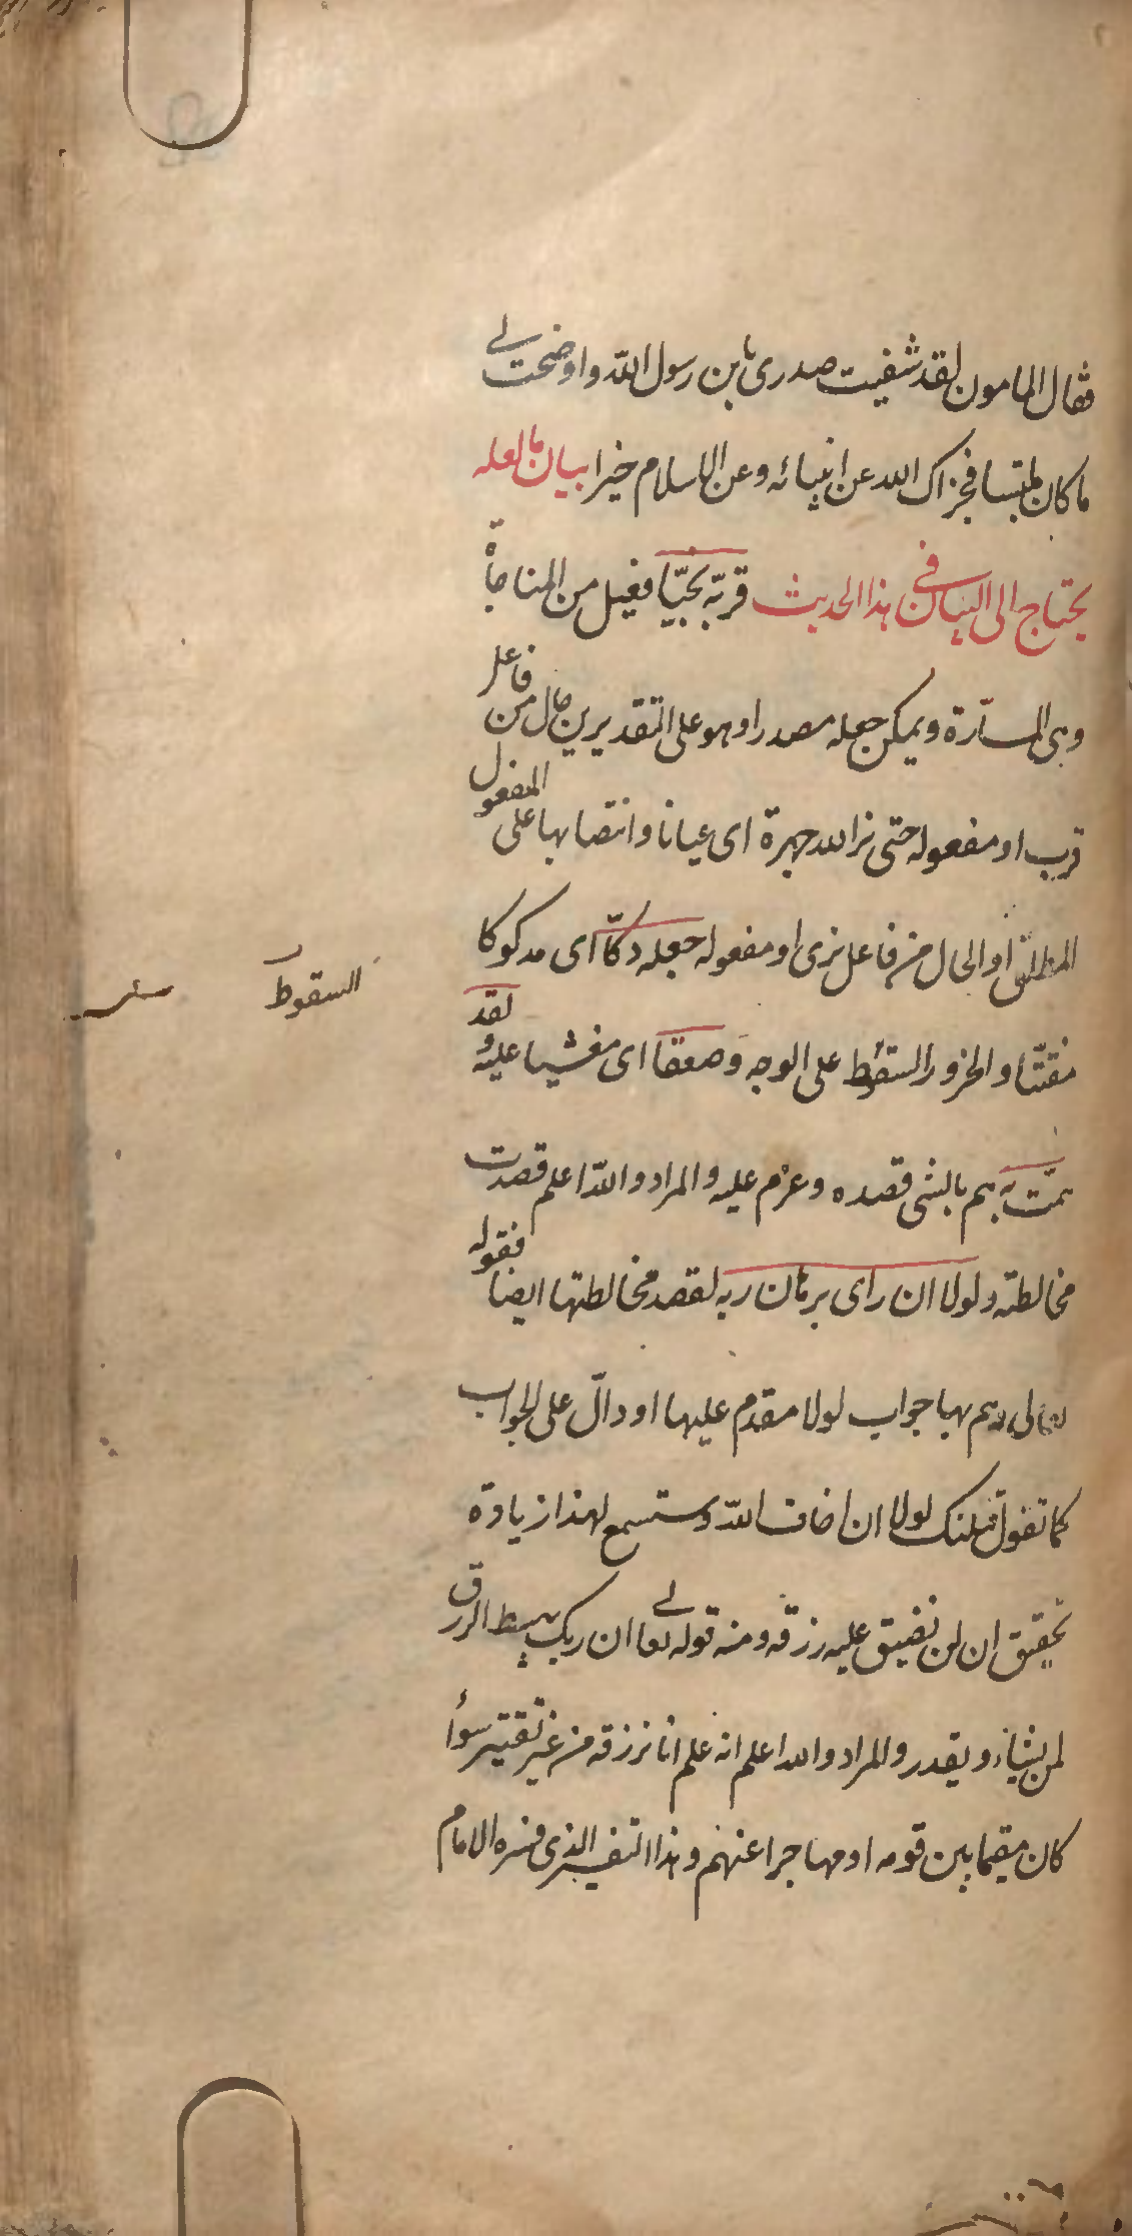 فقال المامون لقد شفيت صدرى يابن رسول الله واوضحت لى
ما كان ملتبسا فجزاك الله عن انبيائه وعن الاسلام خيرا بيان ما لعله
يحتاج الى البيان فى هذا الحديث قربّه نجيّا فعيل من المناجاة
وهى المسارّة ويمكن جعله مصدرا وهو على التقديرين حال من فاعل
قرب او مفعوله حتى نرا الله جهرة اى عيانا وانتصابها على المفعول
المطلق او الحال من فاعل نرى او مفعوله جعله دكّا اى مدكوكا
مفتتا والخرور السقوط على الوجه وصعقا اى مغشيا عليه ولقد
همّت به هم بالشى قصده وعزم عليه والمراد والله اعلم قصدت
مخالطته ولولا ان راى برهان ربه لقصد مخالطتها ايضا فقوله
تعالى وهم بها جواب لولا مقدم عليها او دالّ على الجواب
كما تقول قتلتك لولا ان اخاف الله وستسمع لهذا زيادة
تحقيق ان لن نضيق عليه رزقه ومنه قوله تعالى ان ربك يبسط الرزق
لمن يشاء ويقدر والمراد والله اعلم انه علم انا نرزقه من غير تقتير سواء
كان مقيما بين قومه او مهاجرا عنهم وهذا التفسير الذى فسره الامام
السقوط